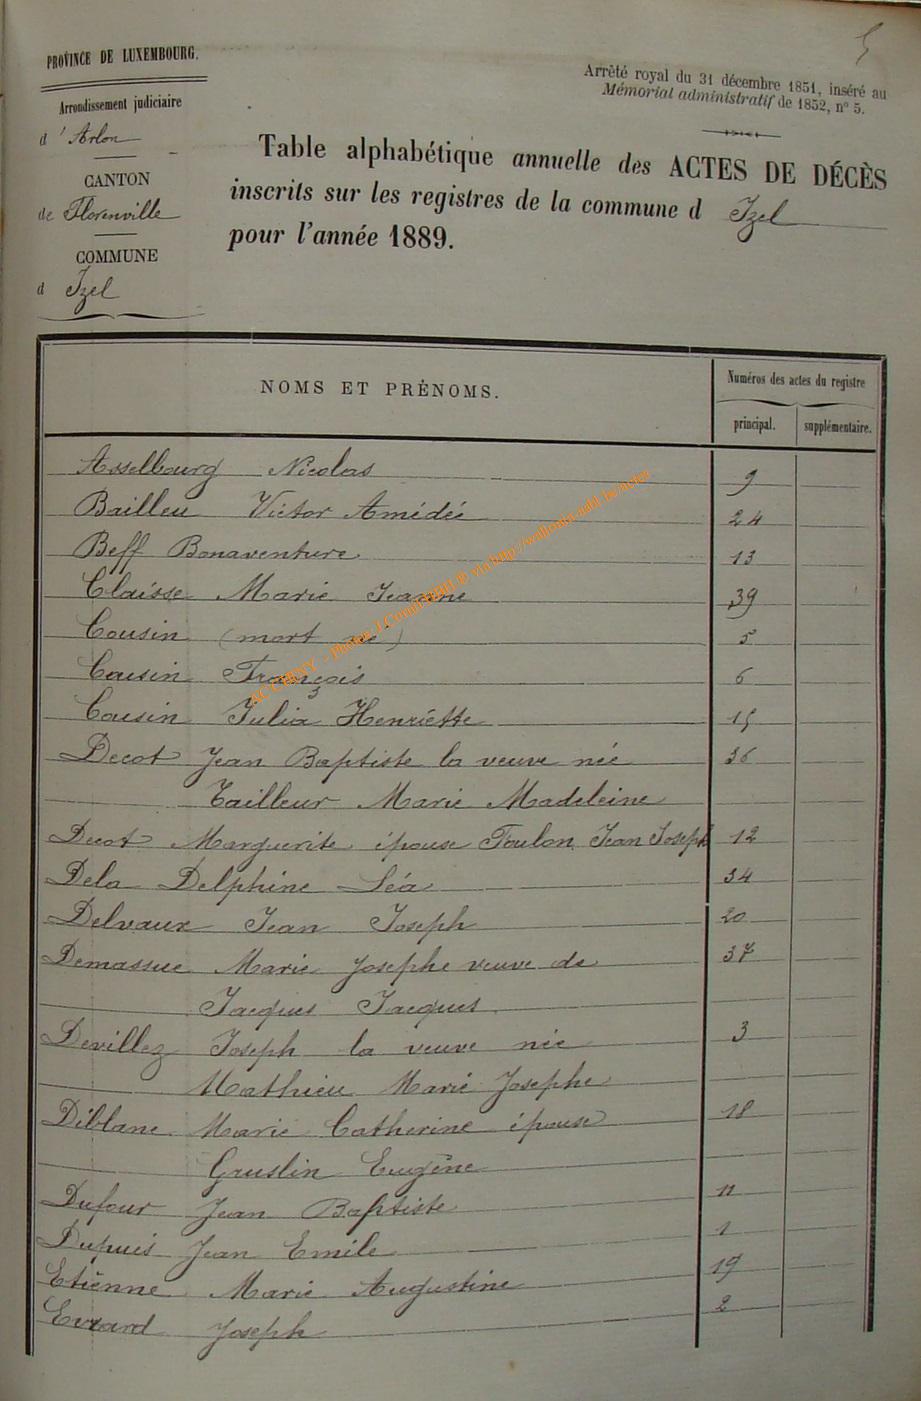 5
PROVINCE DE LUXEMBOURG.
Arrondissement judiciaire
d'Arlon
CANTON
de Florenville
COMMUNE
d Izel
Arrêté royal du 31 décembre 1851, inséré au
Mémorial administratif de 1852, n° 5.
Table alphabétique annuelle des ACTES DE DÉCÈS
inscrits sur les registres de la commune d Izel
pour l'année 1889.
NOMS ET PRÉNOMS.
Numéros des actes du registre
principal. supplémentaire.
Asselbourg Nicolas 9
Bailleu Victor Amédée 24
Beff Bonaventure 13
Claisse Marie Jeanne 39
Cousin (mort né) 5
Cousin François 6
Cousin Julia Henriette 15
Decot Jean Baptiste la veuve née 36
Tailleur Marie Madeleine
Decot Marguerite épouse Foulon Jean Joseph 12
Dela Delphine Léa 34
Delvaux Jean Joseph 20
Demassue Marie Josephe veuve de 37
Jacques Jacques
Devillez Joseph la veuve née 3
Mathieu Marie Josephe
Diblanc Marie Catherine épouse 18
Gruslin Eugène
Dufour Jean Baptiste 11
Dupuis Jean Emile 1
Etiènne Marie Augustine 19
Evrard Joseph 2